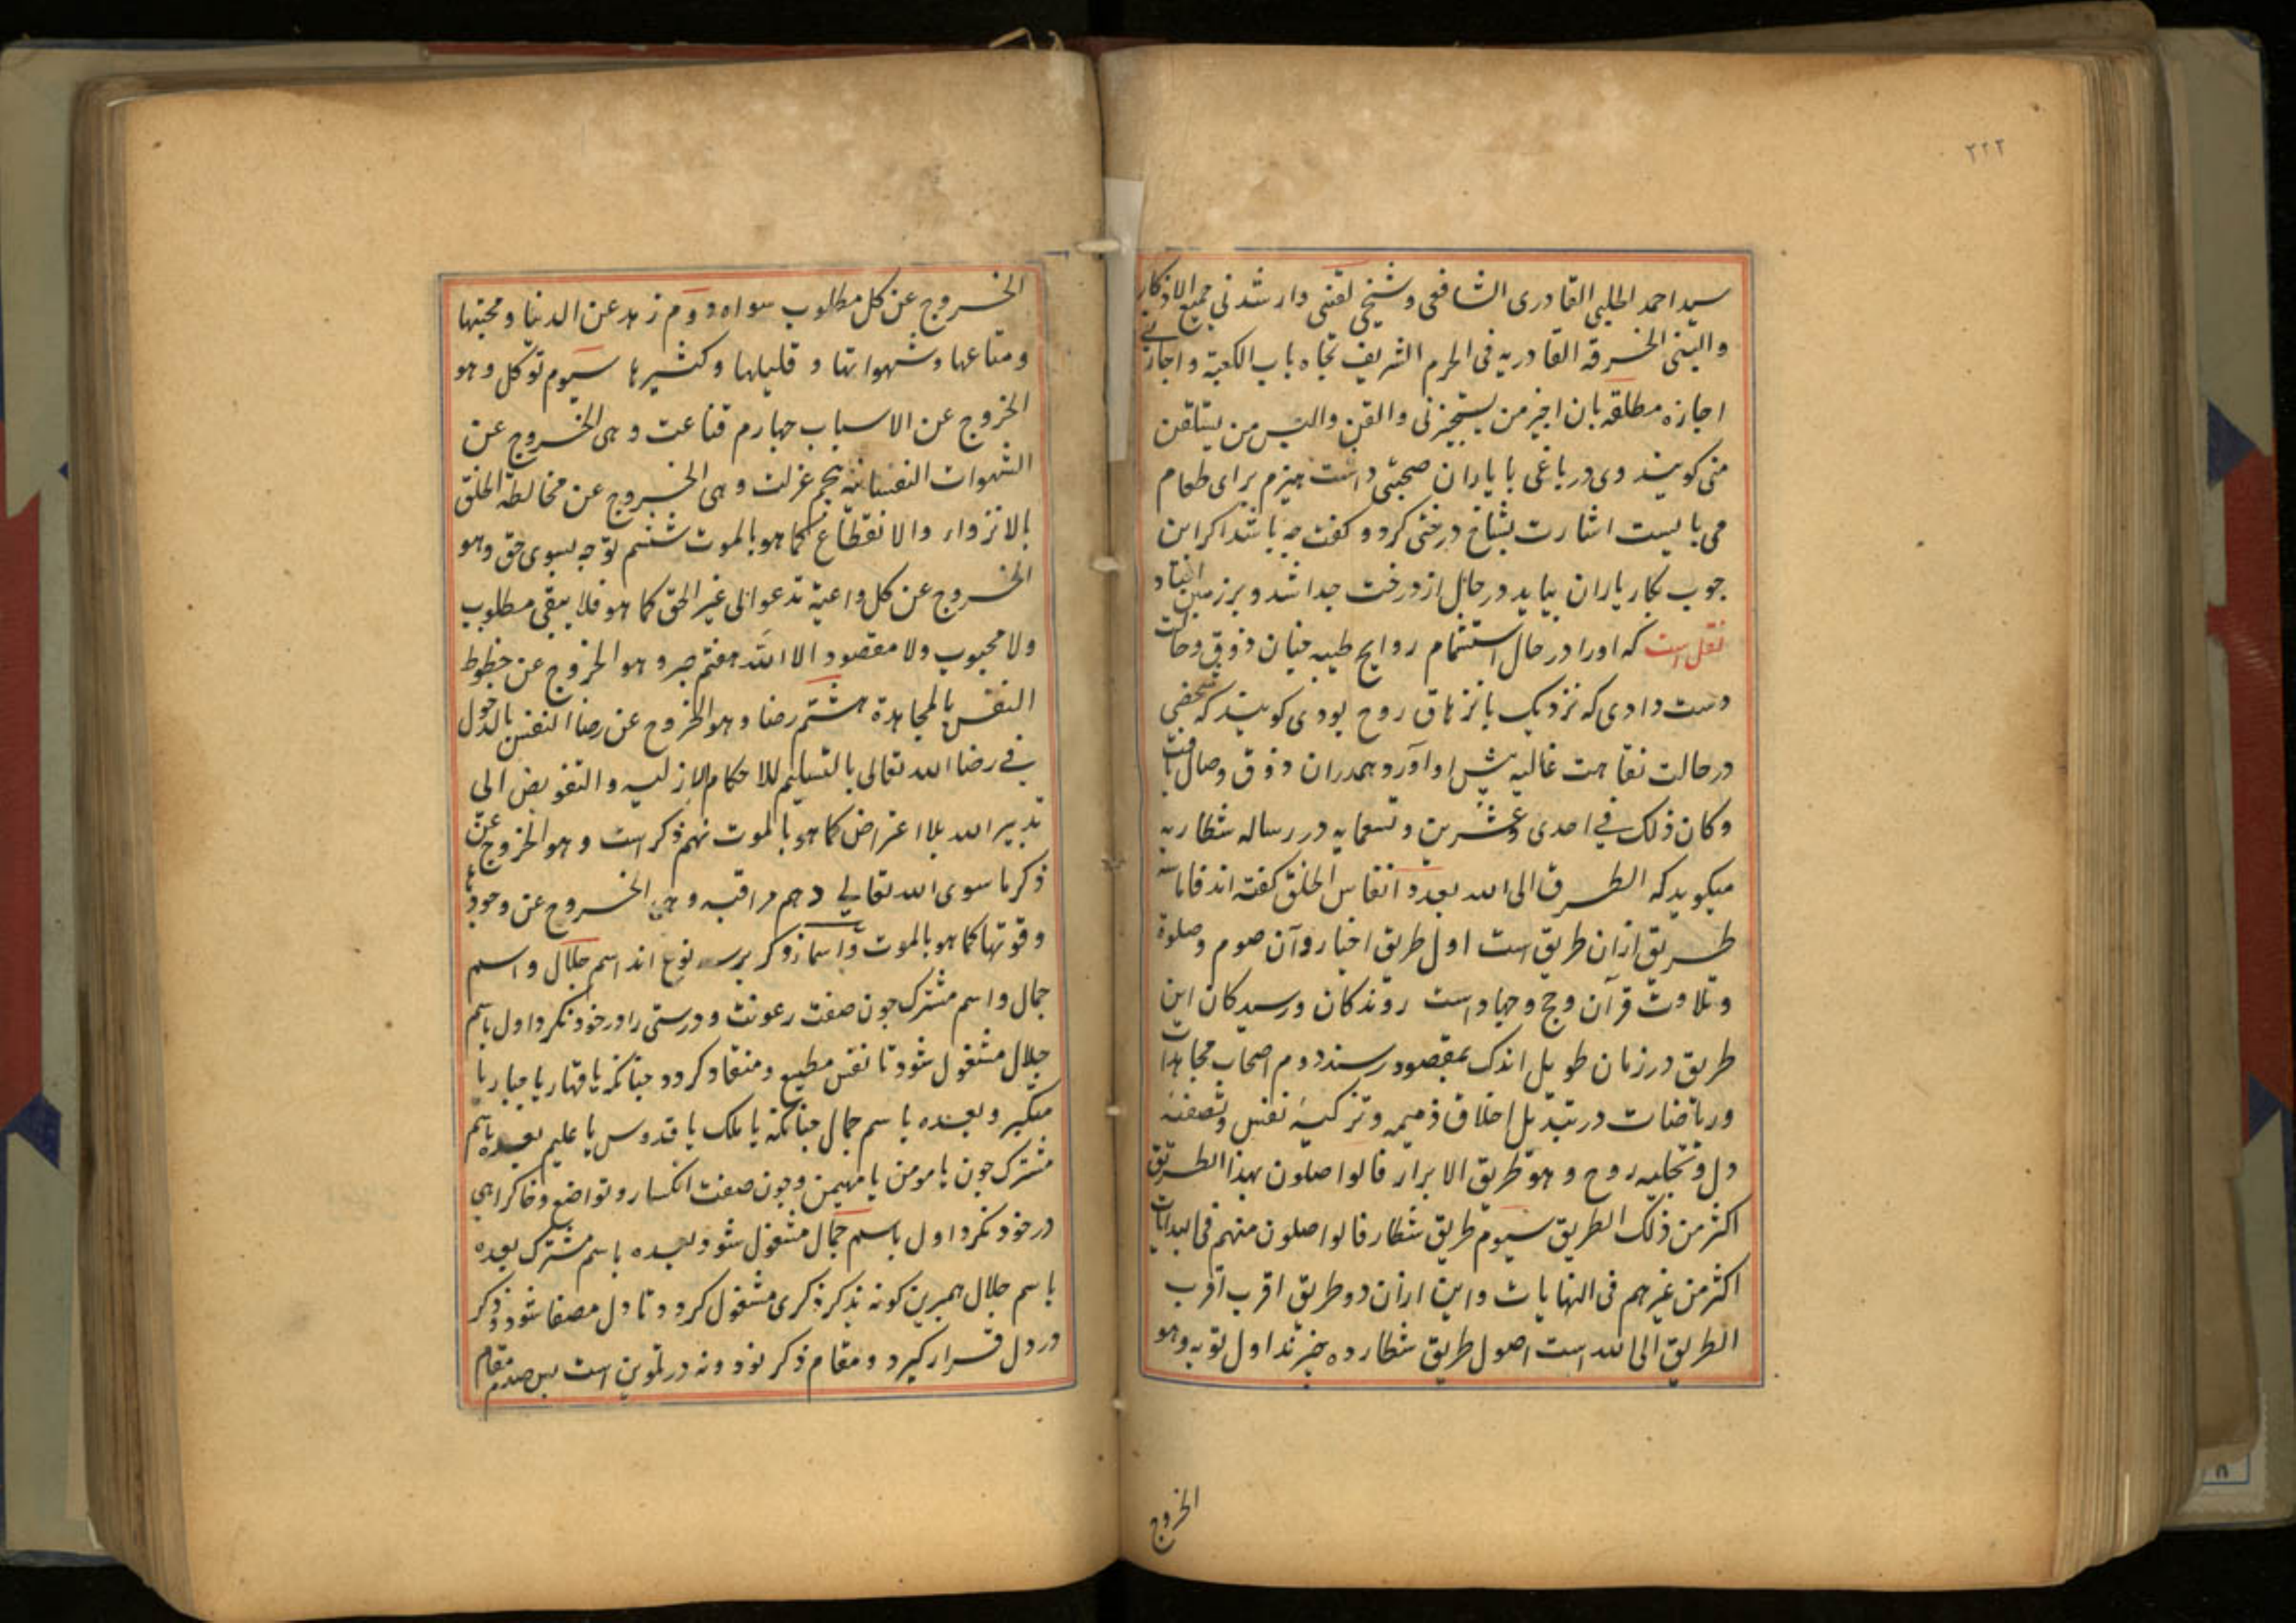 ۲۲۲
سید احمد الحلبی القادری الشافعی و شیخی لقننی وارشدنی جمیع الاذکار
والبسنی الخرقه القادریه فی الحرم الشریف تجاه باب الکعبة و اجازنی
اجازه مطلقه بان اجیز من یستجیزنی والقن والبس من یتلقن
منی کویند وی در باغی با یاران صحبتی داشت هیزم برای طعام
می بایست اشارت بشاخ درختی کرد و کفت چه باشد اکر این
چوب بکار یاران بیاید در حال از درخت جدا شد و بر زمین افتاد
نقل است که او را در حال استشمام روایح طیبه چنان ذوق و حالت
دست دادی که نزدیک بانزهاق روح بودی کویند که شخصی
در حالت نقاهت غالیه پیش او آورد و همدران ذوق وصال یافت
و کان ذلک فی احدی و عشرین و تسعمایه در رساله شطاریه
میکوید که الطرق الی الله بعدد انفاس الخلق کفته اند فاما سه
طریق ازان طریق است اول طریق اخیار و آن صوم و صلوة
و تلاوت قرآن و حج و جهاد است روندکان و رسیدکان این
طریق در زمان طویل اندک بمقصود رسند دوم اصحاب مجاهدات
و ریاضات در تبدیل اخلاق ذمیمه و تزکیۀ نفس و تصفیه
دل و تجلیه روح و هو طریق الابرار فالواصلون بهذا الطریق
اکثر من ذلک الطریق سیوم طریق شطار فالواصلون منهم فی البدایات
اکثر من غیرهم فی النهایات و این ازان دو طریق اقرب اقرب
الطریق الی الله است اصول طریق شطار ده چیزند اول توبه وهو
الخروج
الخروج عن کل مطلوب سواه دوم زهد عن الدنیا و محبتها
و متاعها و شهواتها و قلیلها و کثیرها سیوم توکل و هو
الخروج عن الاسباب چهارم قناعت و هی الخروج عن
الشهوات النفسانیه پنجم عزلت و هی الخروج عن مخالطة الخلق
بالانزواء والانقطاع کما هو بالموت ششم توجه بسوی حق وهو
الخروج عن کل داعیة تدعو الی غیر الحق کما هو فلا یبقی مطلوب
ولا محبوب ولا مقصود الا الله هفتم صبر و هو الخروج عن حظوظ
النفس بالمجاهدة هشتم رضا و هو الخروج عن رضا النفس بالدخول
فی رضا الله تعالی بالتسلیم للاحکام الازلیه والتفویض الی
تدبیر الله بلا اعتراض کما هو بالموت نهم ذکر است و هو الخروج عن
ذکر ما سوی الله تعالی دهم مراقبه و هی الخروج عن وجودها
و قوتها کما هو بالموت و اسماء ذکر بر سه نوع اند اسم جلال و اسم
جمال و اسم مشترک چون صفت رعونت و درستی را در خود نکرد اول باسم
جلال مشغول شود تا نفس مطیع و منقاد کردد چنانکه یا قهار یا جبار یا
متکبر و بعده باسم جمال چنانکه یا ملک یا قدوس یا علیم بعده باسم
مشترک چون یا مومن یا مهیمن و چون صفت انکسار و تواضع و خاکراهی
در خود نکرد اول باسم جمال مشغول شود بعده باسم مشترک بعده
باسم جلال همبرین کونه بذکر ذکری مشغول کردد تا دل مصفا شود و ذکر
در دل قرار کیرد و مقام ذکر نود و نه در تلوین است پس صدم مقام